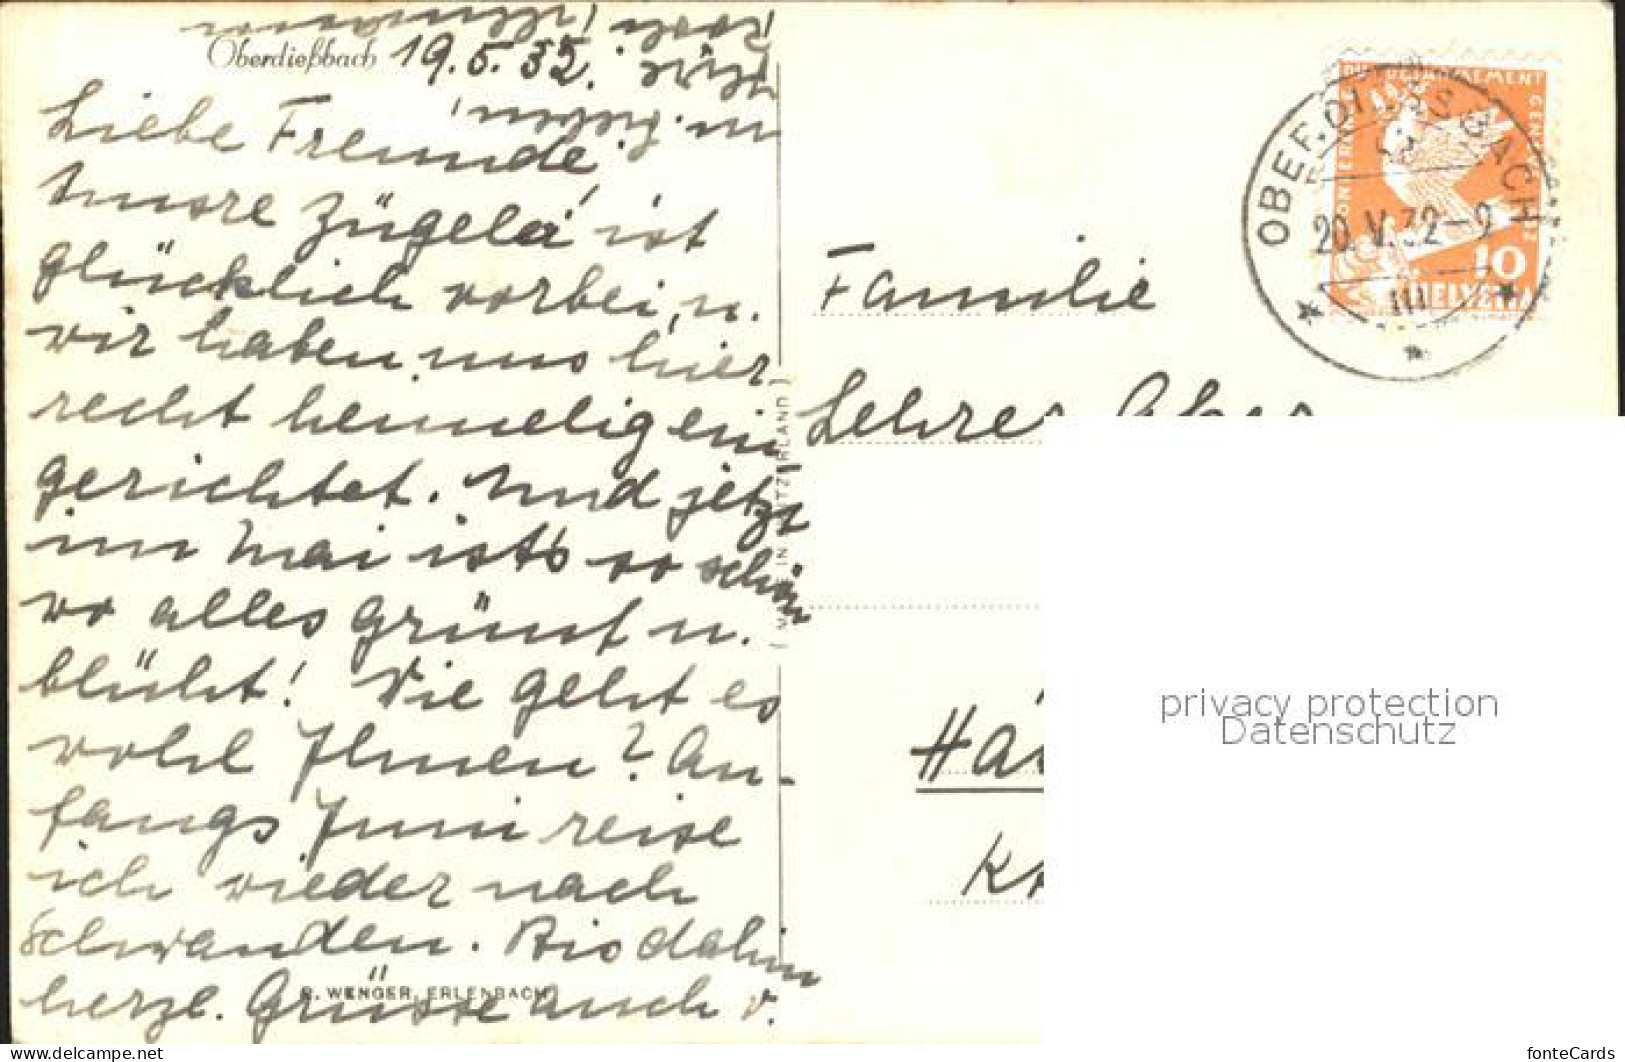 Oberdießbach 19.5.32.
Liebe Freunde!
Unsre Zügelei ist
glücklich vorbei, u.
wir haben uns hier
recht heimelig ein
gerichtet. Und jetzt
im Mai ist's so schön
wo alles grünt u.
blüht! Wie geht es
wohl Ihnen? An-
fangs Juni reise
ich wieder nach
Schwanden. Bis dahin
herzl. Grüsse auch v.
R. WENGER, ERLENBACH
m. Lieben!
Ihre
( MADE IN SWITZERLAND )
OBERDIESSBACH
20.V.32-9
III
CONFERENCE DU DESARMEMENT GENEVE 1932
10
HELVETIA
Familie
Lehrer
Hä
Ka
privacy protection
Datenschutz
www.delcampe.net
fonteCards